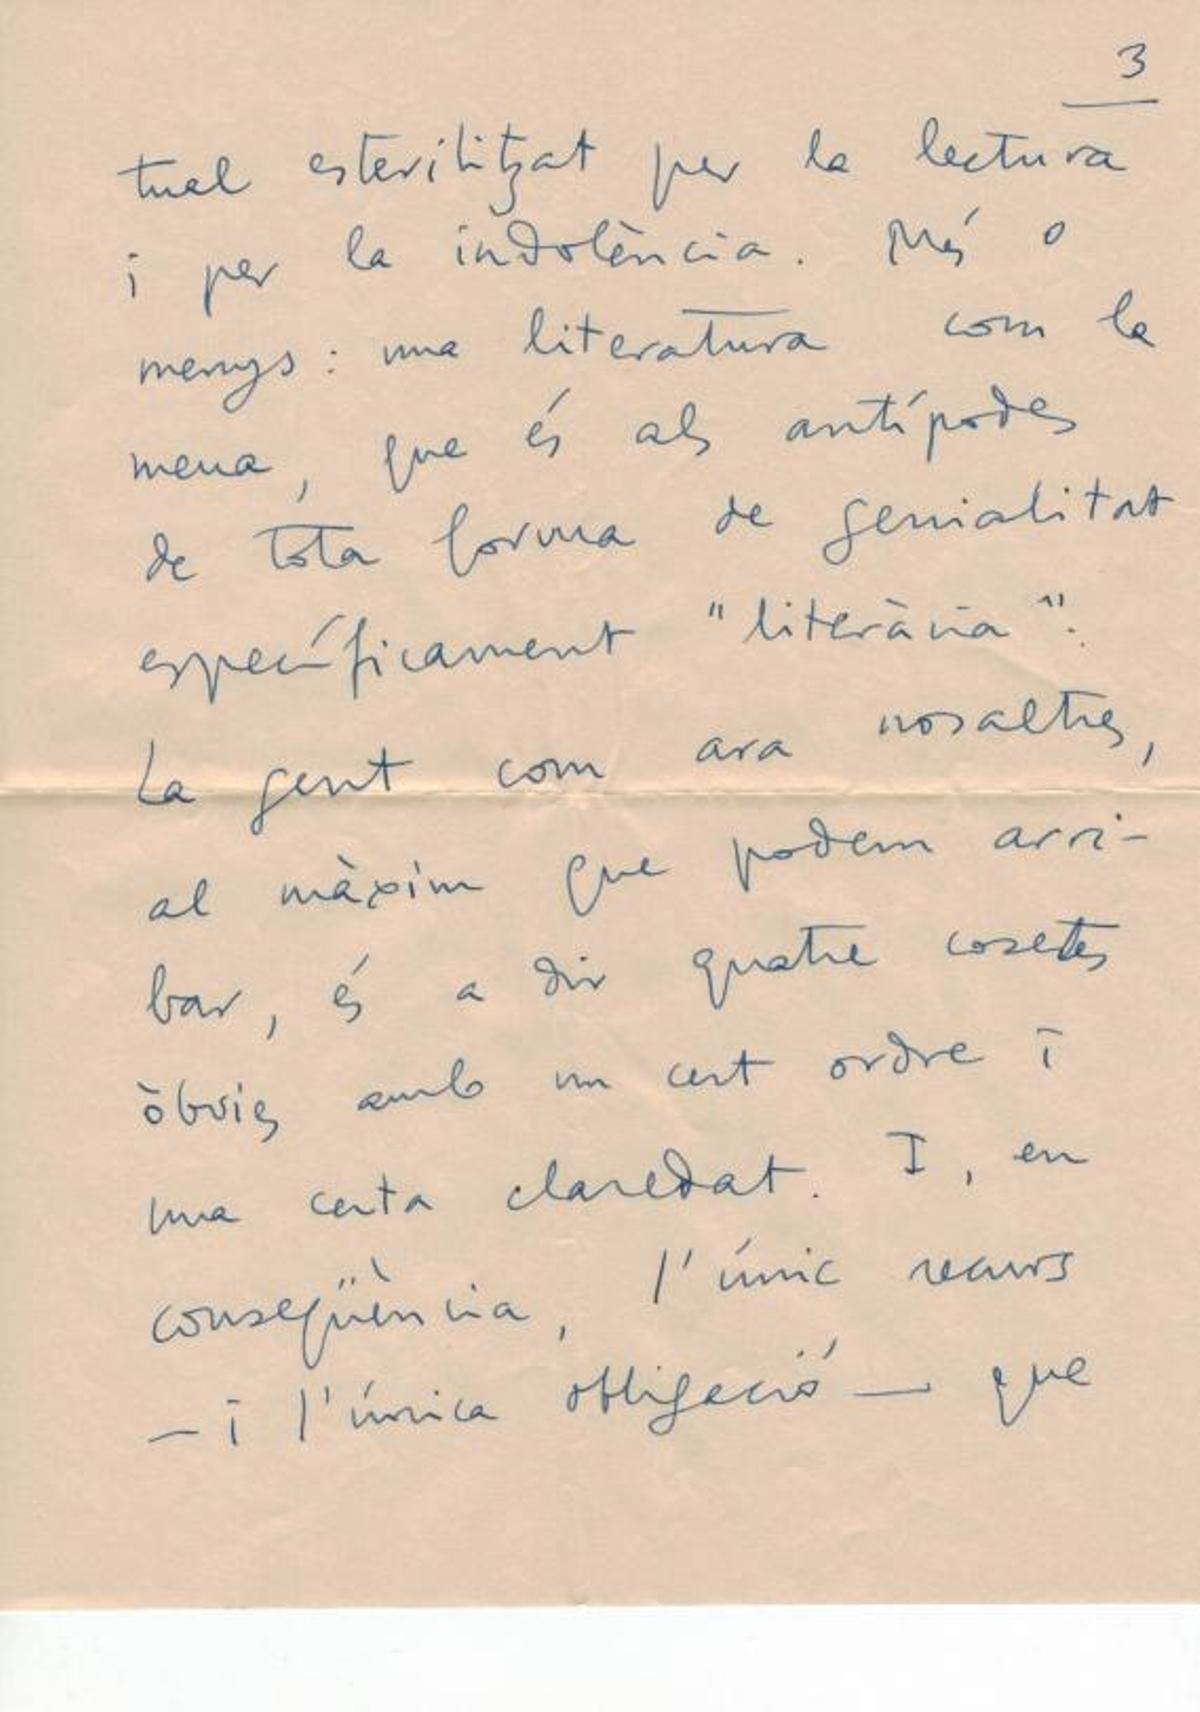 3
tual esterilitzat per la lectura
i per la indolència. Més o
menys: una literatura com la
meua, que és als antípodes
de tota forma de genialitat
específicament "literària".
La gent com ara nosaltres,
al màxim que podem arri-
bar, és a dir quatre cosetes
òbvies amb un cert ordre i
una certa claredat. I, en
conseqüència, l'únic recurs
— i l'única obligació — que